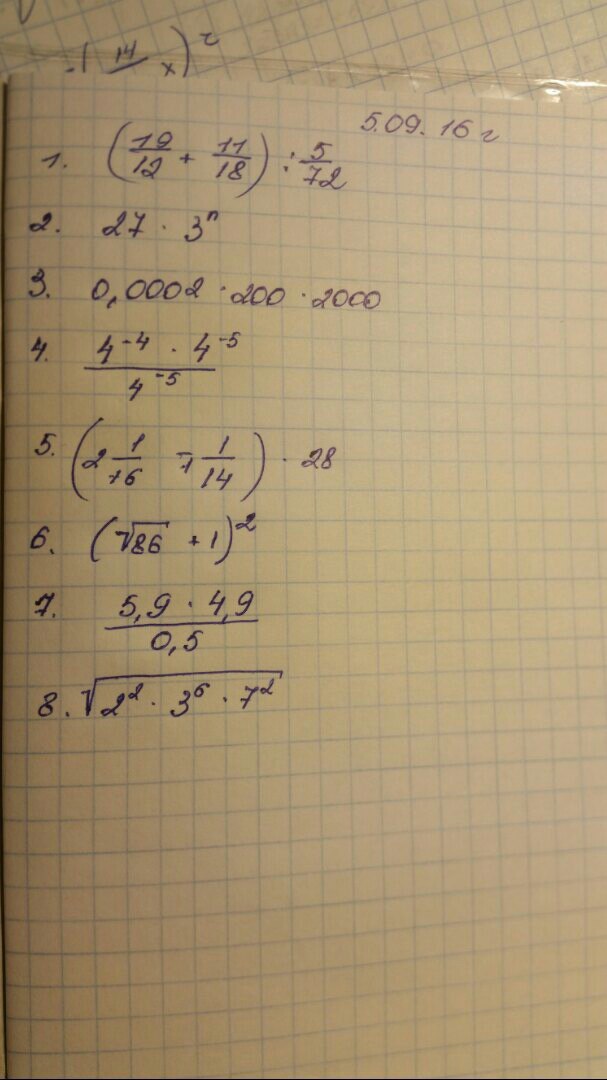 (14/ x)²
5.09.16 г
1. (19/12 + 11/18) : 5/72
2. 27 · 3ⁿ
3. 0,0002 · 200 · 2000
4. 4⁻⁴ · 4⁻⁵ / 4⁻⁵
5. (2 1/16 + 1/14) · 28
6. (√86 + 1)²
7. 5,9 · 4,9 / 0,5
8. √(2² · 3⁶ · 7²)